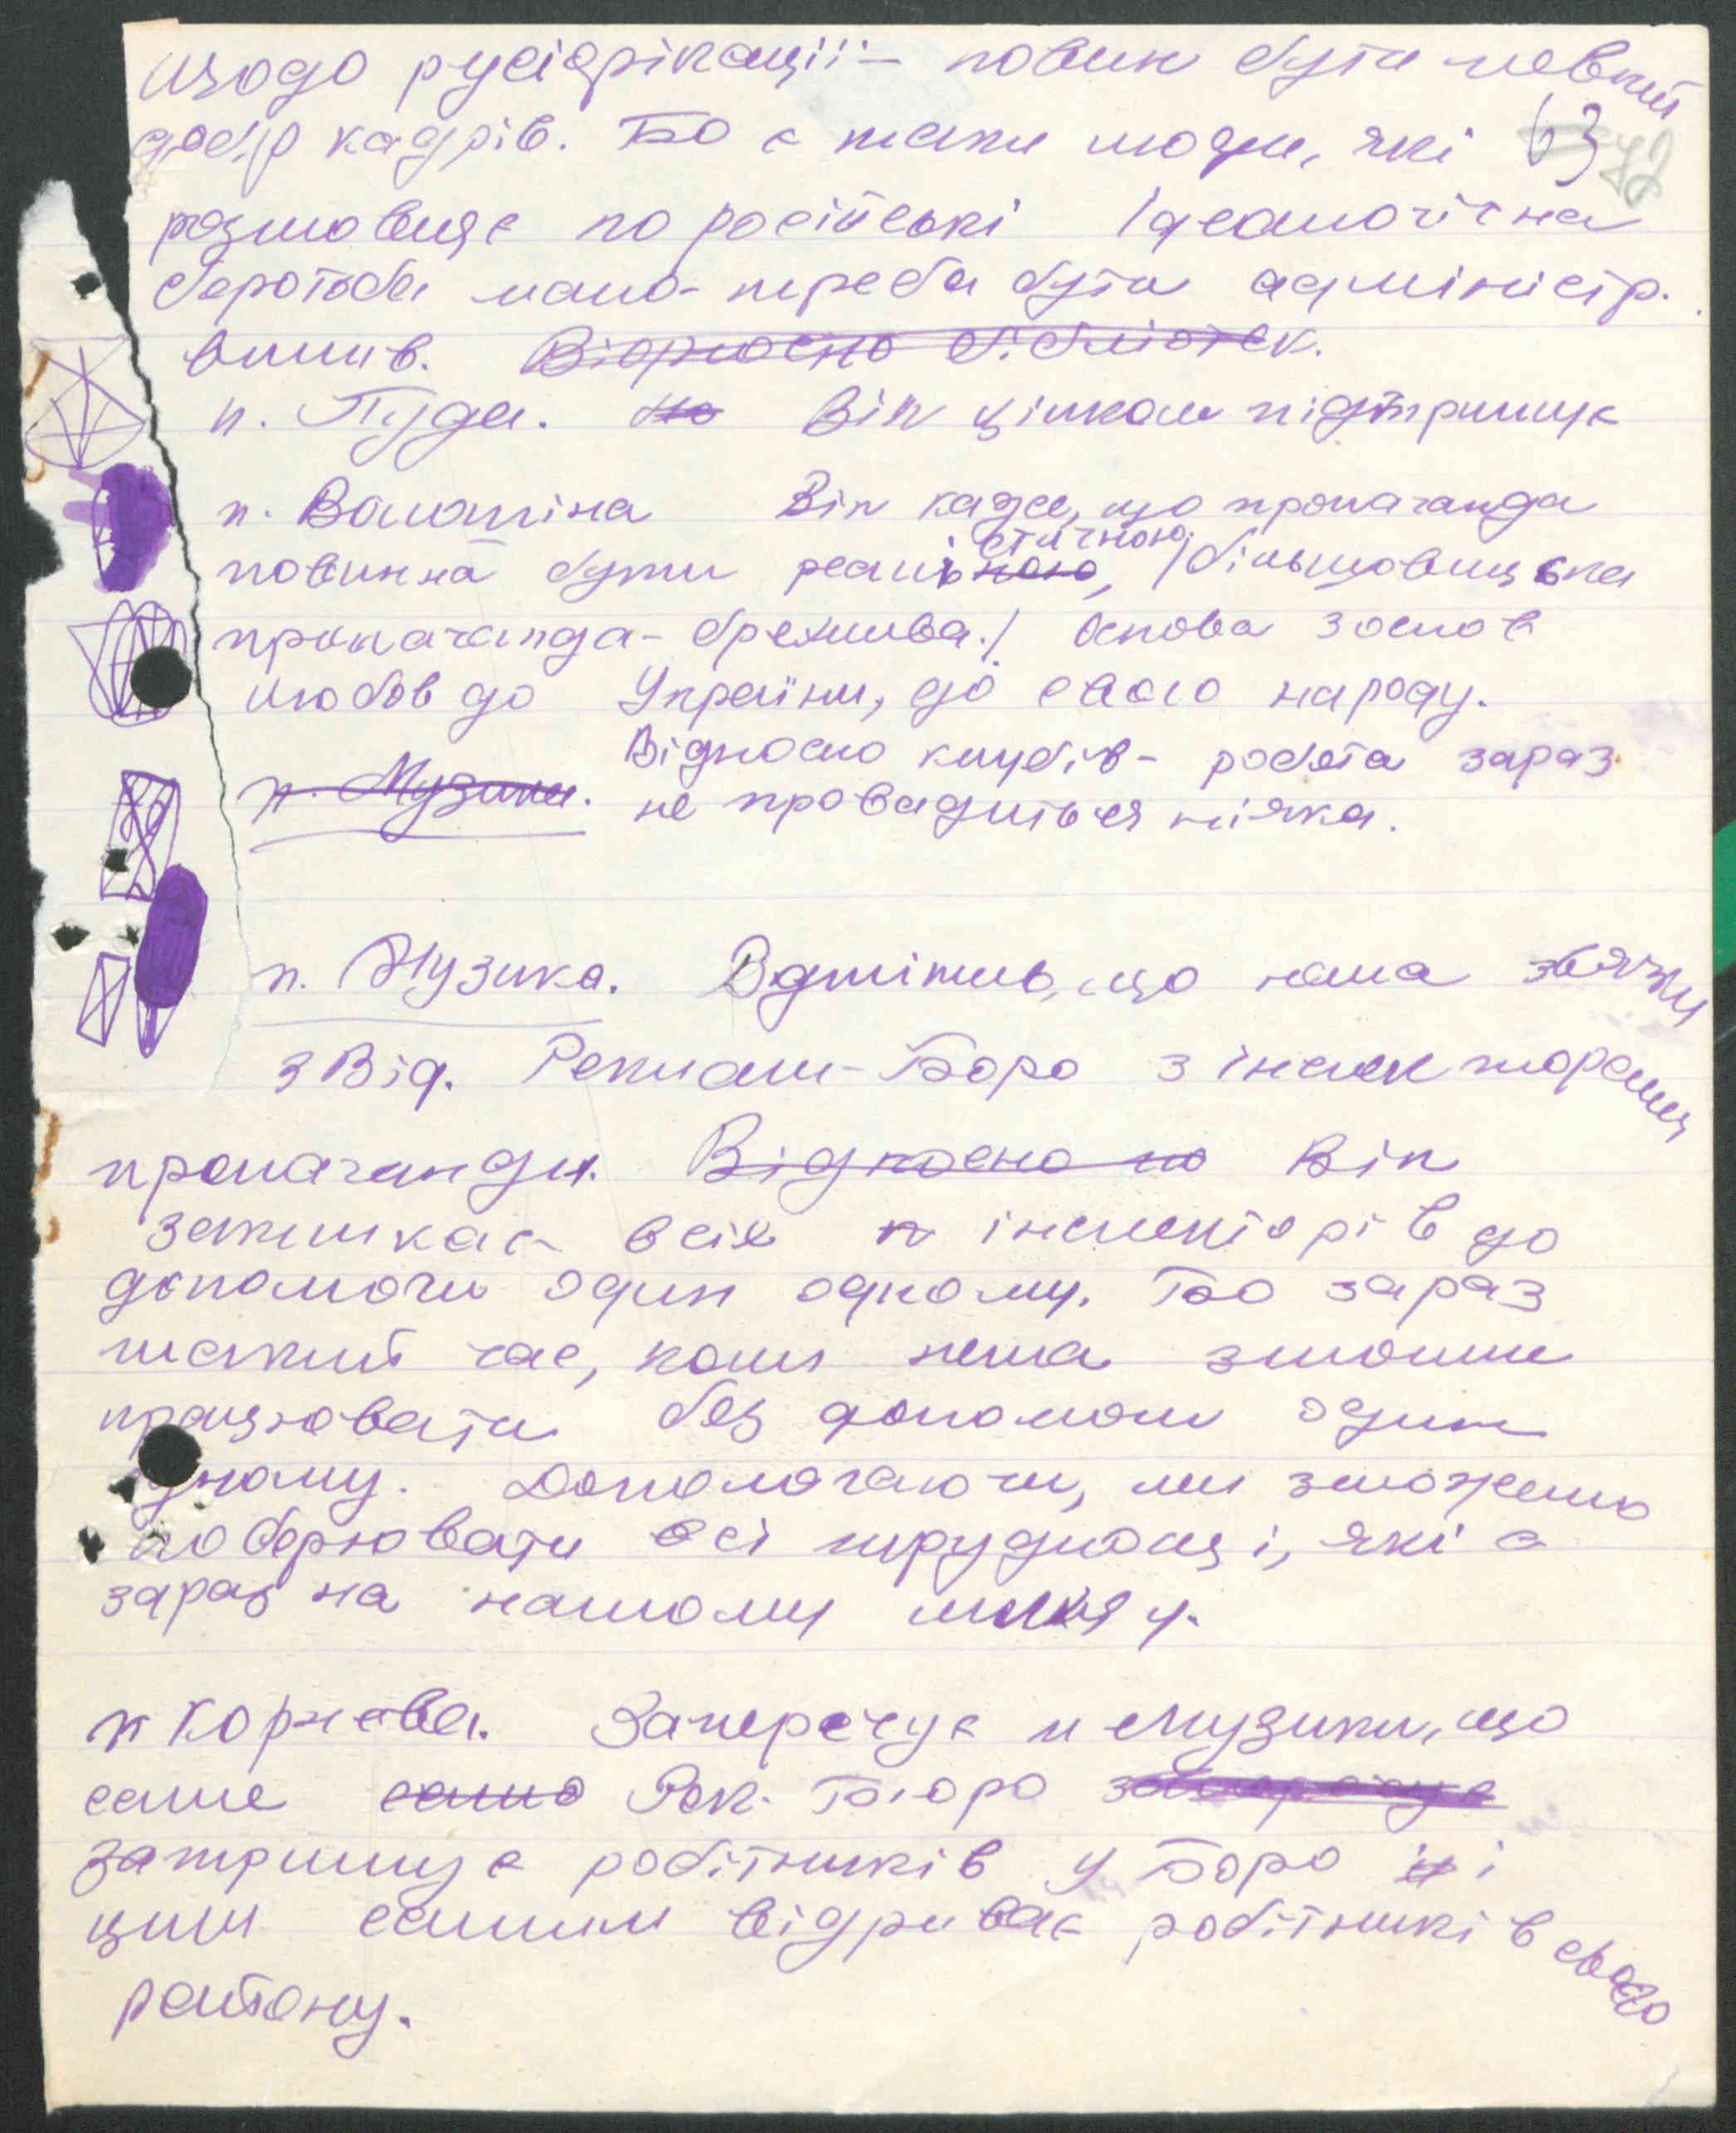 Щодо русіфікації – повин бути певний
добір кадрів. Бо є таки люди, які 63
розмовляє по російські Ідеологічна 72
боротьба мало - треба бути адміністр.
вплив. Відносно бібліотек.
п. Пуда. Він цілком підтримує
п. Валатіна Він каже, що пропаганда
стичною,
повинна бути реальною, /більшовицька
пропаганда - брехлива./ Основа з основ
любов до України, до свого народу.
Відносно клубів - робота зараз
п. Музика. не провадиться ніяка.
п. Музика. Вдмітив, що нема звязку
з Від. Реклам-Боро з інспекторами
пропаганди. Відносно по Він
закликає всіх п інспекторів до
допомоги один одному. Бо зараз
такий час, коли нема змоги
працювати без допомоги один
дному. Допомогаючи, ми зможемо
поборювати всі труднощі, які є
зараз на нашому шляху.
п Корнєва. Заперечує п Музики, що
саме само Рек. Бюро заперечує
затримує робітників у Боро і
цим самим відриває робітників свого
району.